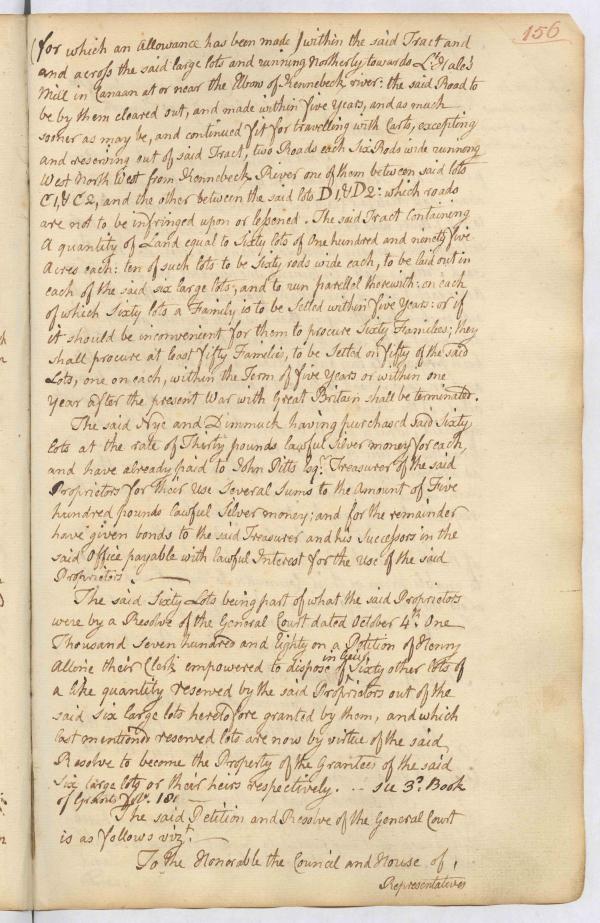 156
(for which an Allowance has been made) within the said Tract and
and across the said large lots and running Northerly towards Lt. Hale's
Mill in Canaan at or near the Elbow of Kennebeck river: the said Road to
be by them cleared out, and made within five years, and as much
sooner as may be, and continued fit for travelling with Carts, excepting
and reserving out of said Tract, two Roads each Six Rods wide running
West North West from Kennebeck River one of them between said lots
C1, & C2, and the other between the said lots D1, & D2: which roads
are not to be infringed upon or lessened. The said Tract containing
A quantity of Land equal to Sixty lots of One hundred and ninety five
Acres each: ten of such lots to be Sixty rods wide each, to be laid out in
each of the said six large lots, and to run parellel therewith: on each
of which Sixty lots a Family is to be Setled within five Years: or if
it should be inconvenient for them to procure Sixty Families; they
shall procure at least fifty Families, to be Setled on fifty of the said
Lots, one on each, within the Term of five Years or within one
Year after the present War with Great Britain shall be terminated.
The said Nye and Dimmuck having purchased said Sixty
lots at the rate of Thirty pounds lawful Silver money for each,
and have already paid to John Pitts Esqr. Treasurer of the said
Proprietors for their Use Several Sums to the Amount of Five
hundred pounds lawful Silver money; and for the remainder
have given bonds to the said Treasurer and his Successors in the
said Office payable with lawful Interest for the Use of the said
Proprietors.
The said Sixty Lots being part of what the said Proprietors
were by a Resolve of the General Court dated October 4th. One
Thousand Seven hundred and Eighty on a Petition of Henry
Alline their Clerk empowered to dispose of in lieu Sixty other lots of
a like quantity reserved by the said Proprietors out of the
said Six large lots heretofore granted by them, and which
last mention'd reserved lots are now by virtue of the said
Resolve to become the Property of the Grantees of the said
Six large lots or their heirs respectively. -- see 3d. Book
of Grants
The said Petition and Resolve of the General Court
is as follows vizt.
To the Honorable the Council and House of
Representatives